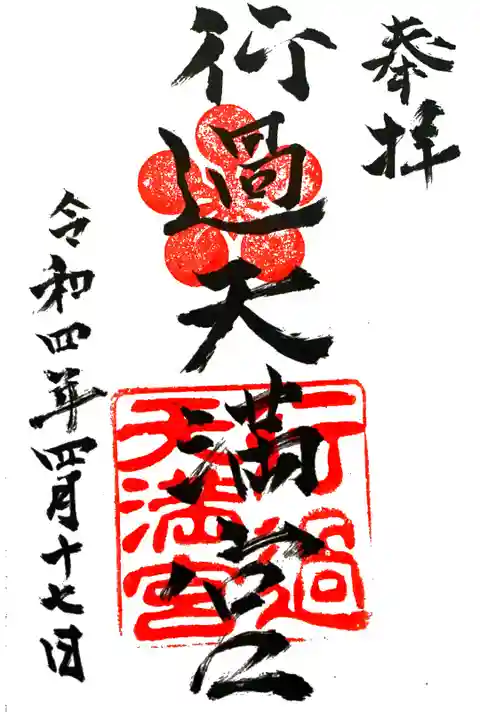 奉拝
行過天満宮
令和四年四月十七日
行過
天満宮